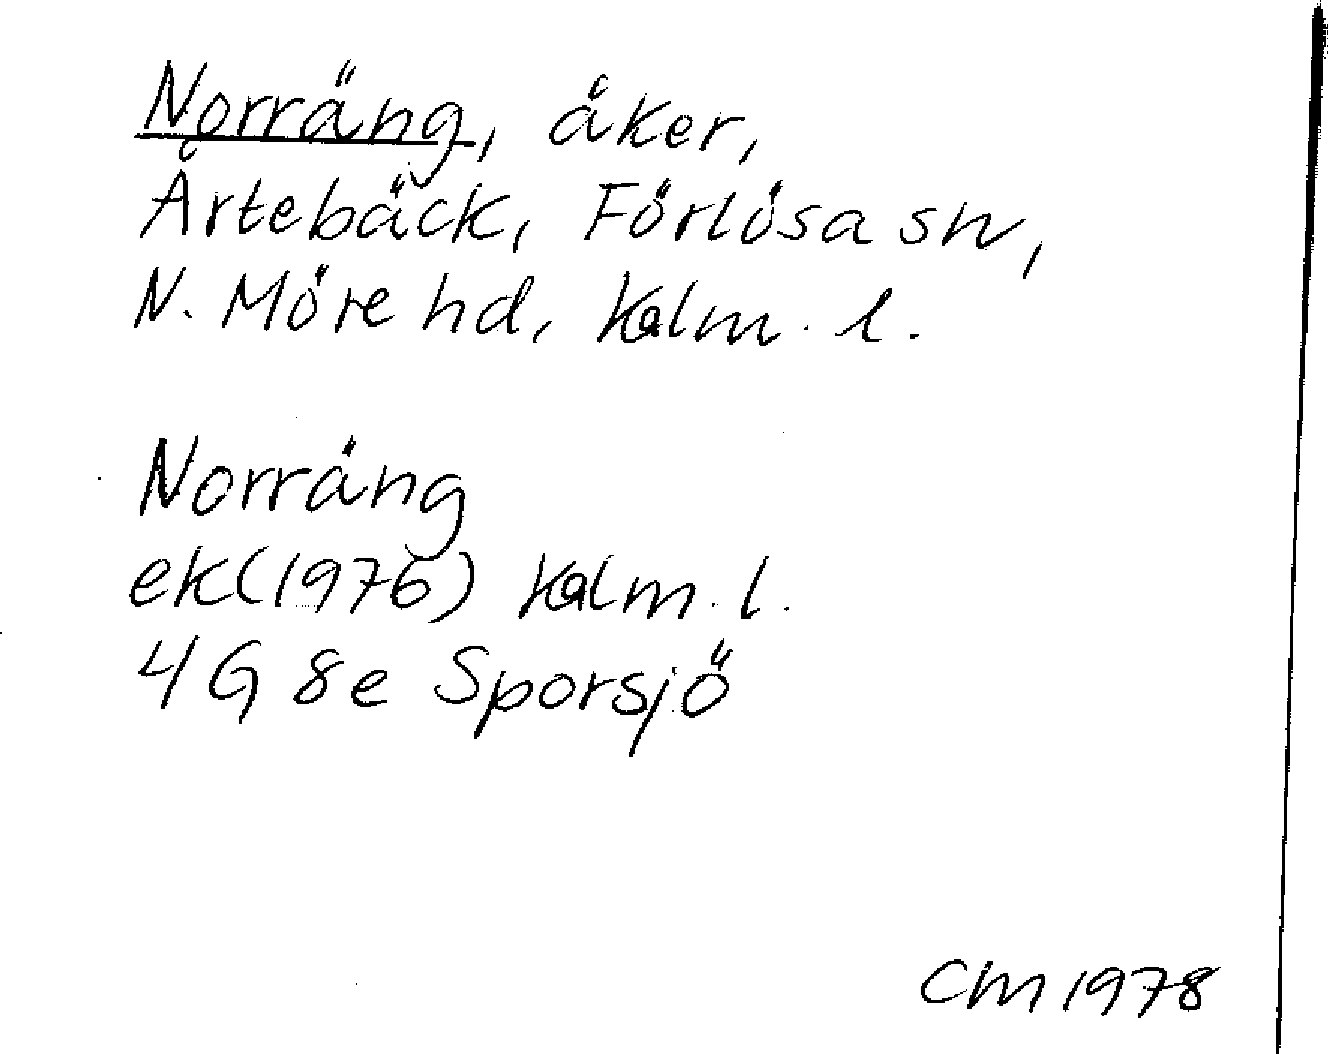 Norräng, åker,
Årtebäck, Förlösa sn,
N. Möre hd, Kalm. l.
Norräng
ek(1976) Kalm. l.
4G 8e Sporsjö
CM 1978